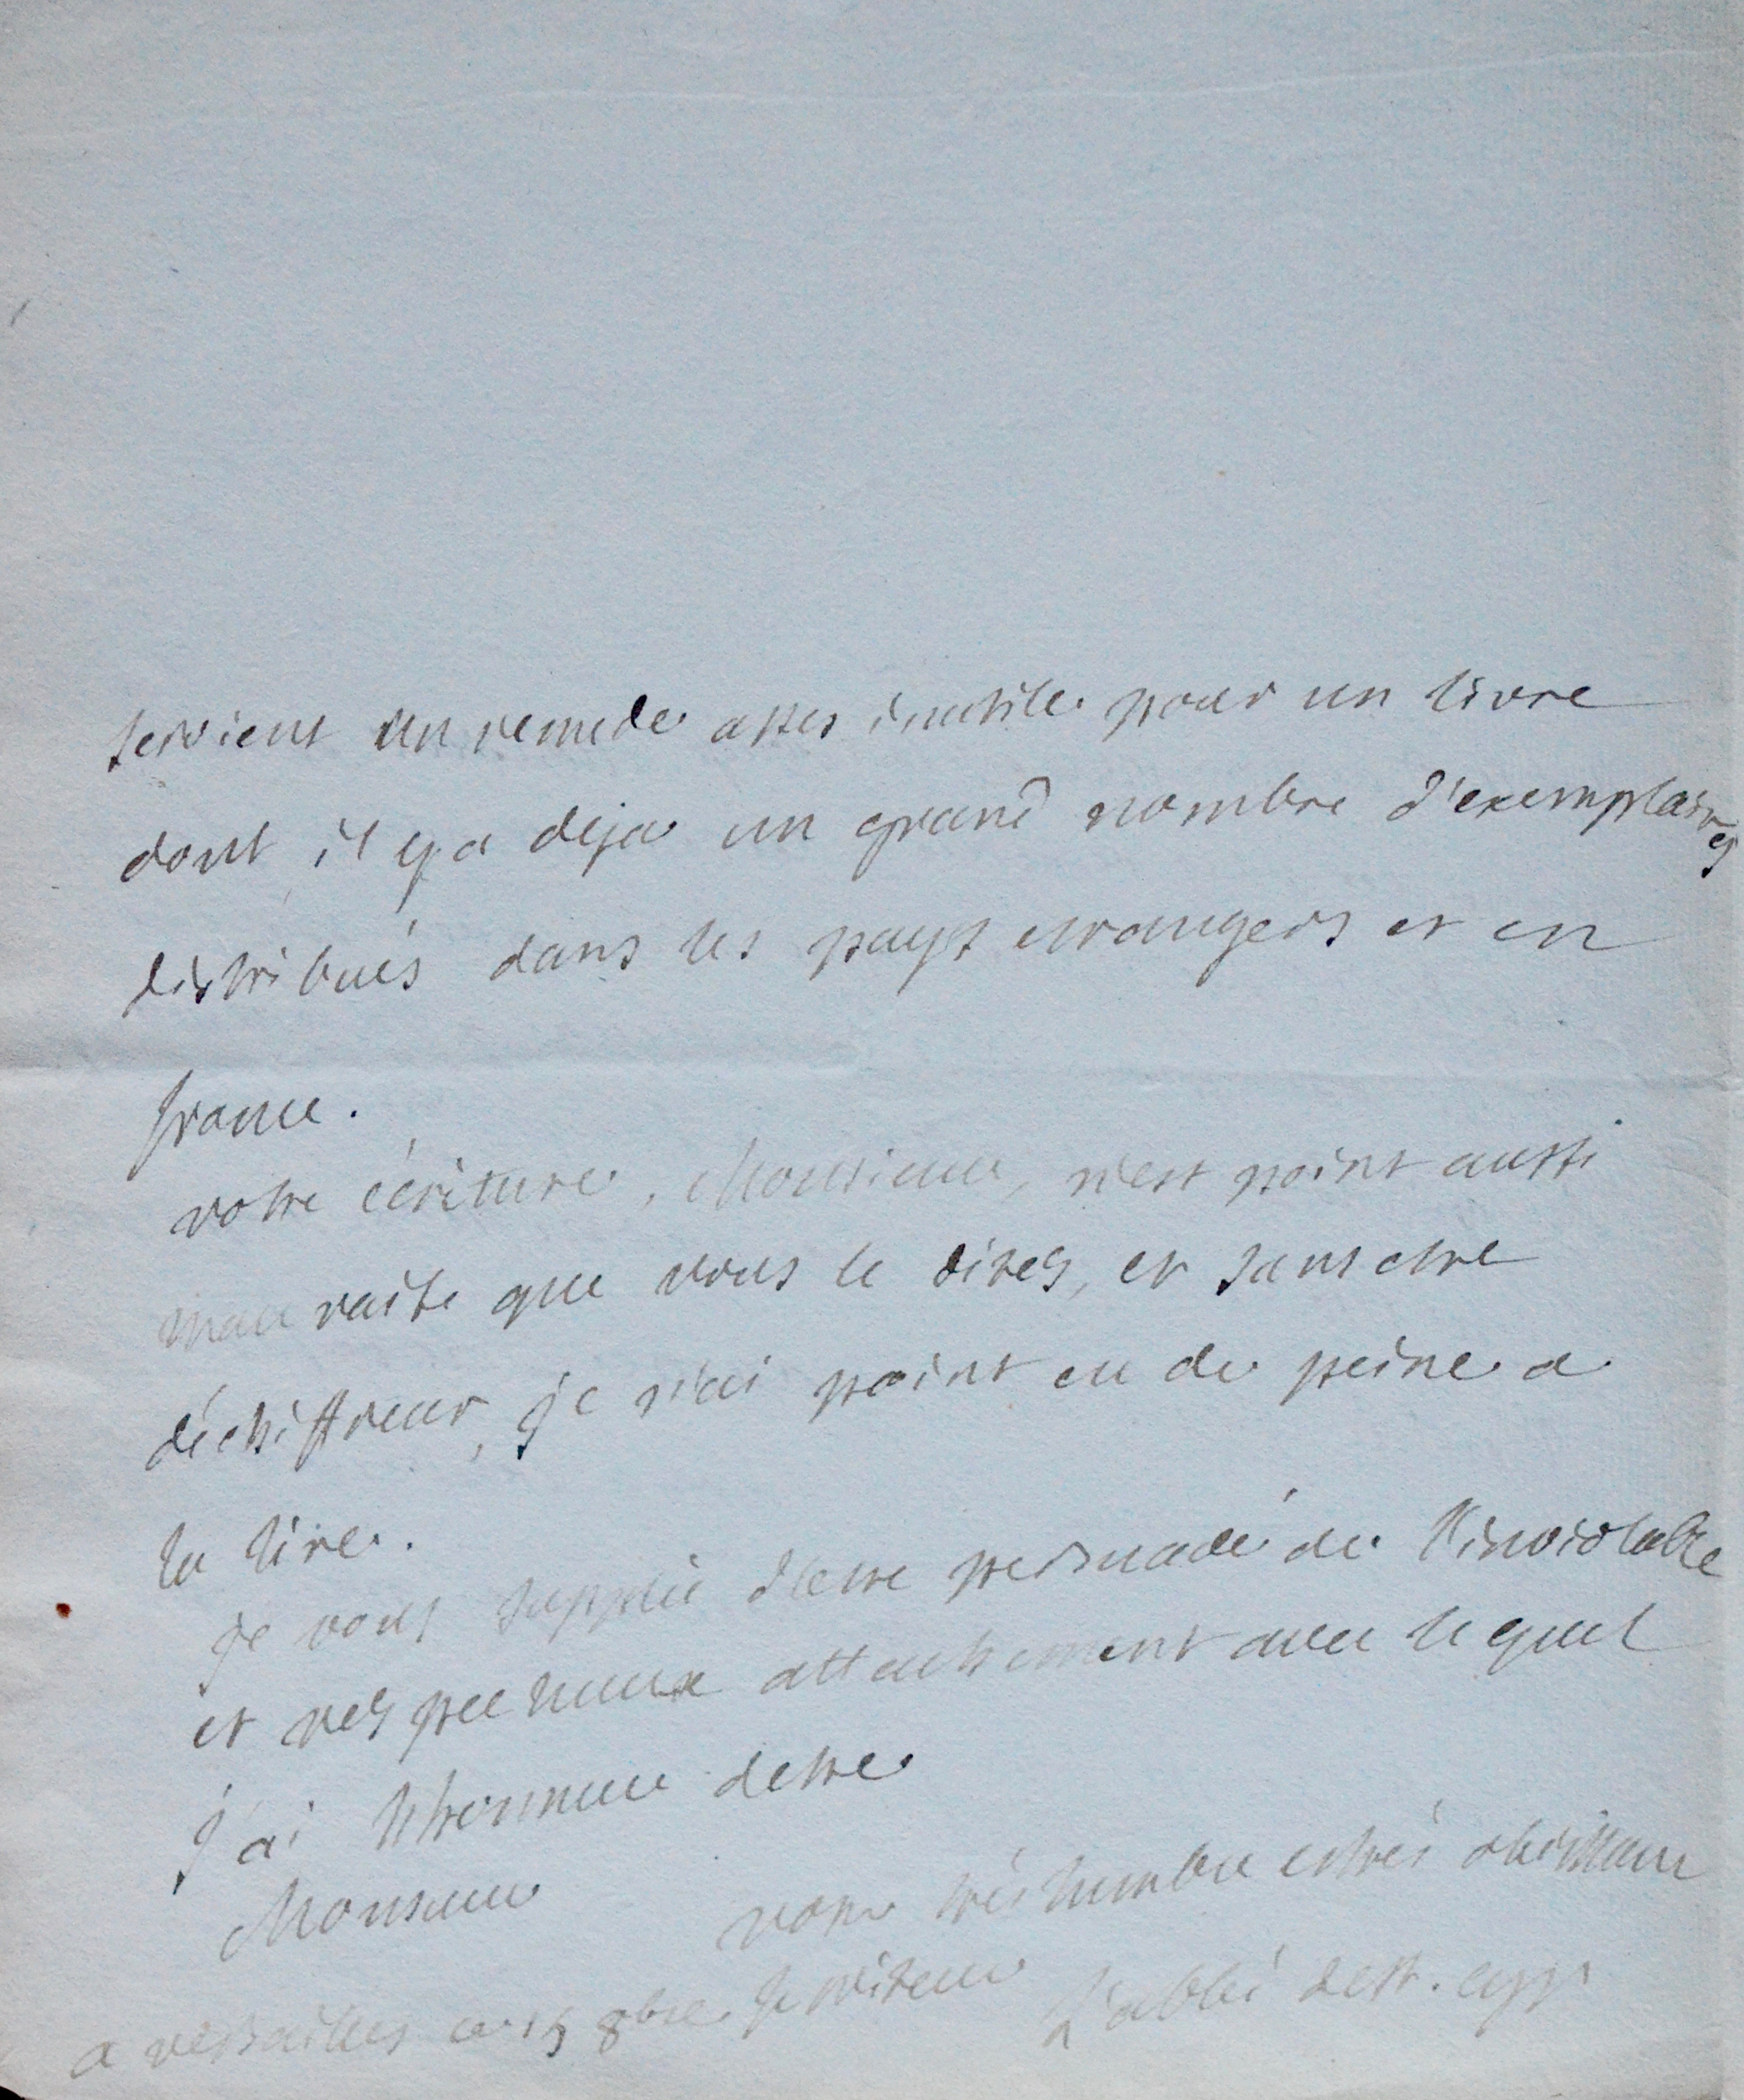 servient un remede asses inutile pour un livre
dont il y a deja un grand nombre d'exemplaires
distribués dans les pays etrangers et en
france.
votre écriture, Monsieur, n'est point aussi
mauvaise que vous le dites, et sans etre
déchiffreur, je n'ai point eu de peine a
la lire.
je vous supplie d'etre persuadé de l'inviolable
et respectueux attachement avec lequel
j'ai l'honneur detre
Monsieur votre très humble et très obeissant
a versailles ce 15 8bre serviteur L'abbé de st. cyr